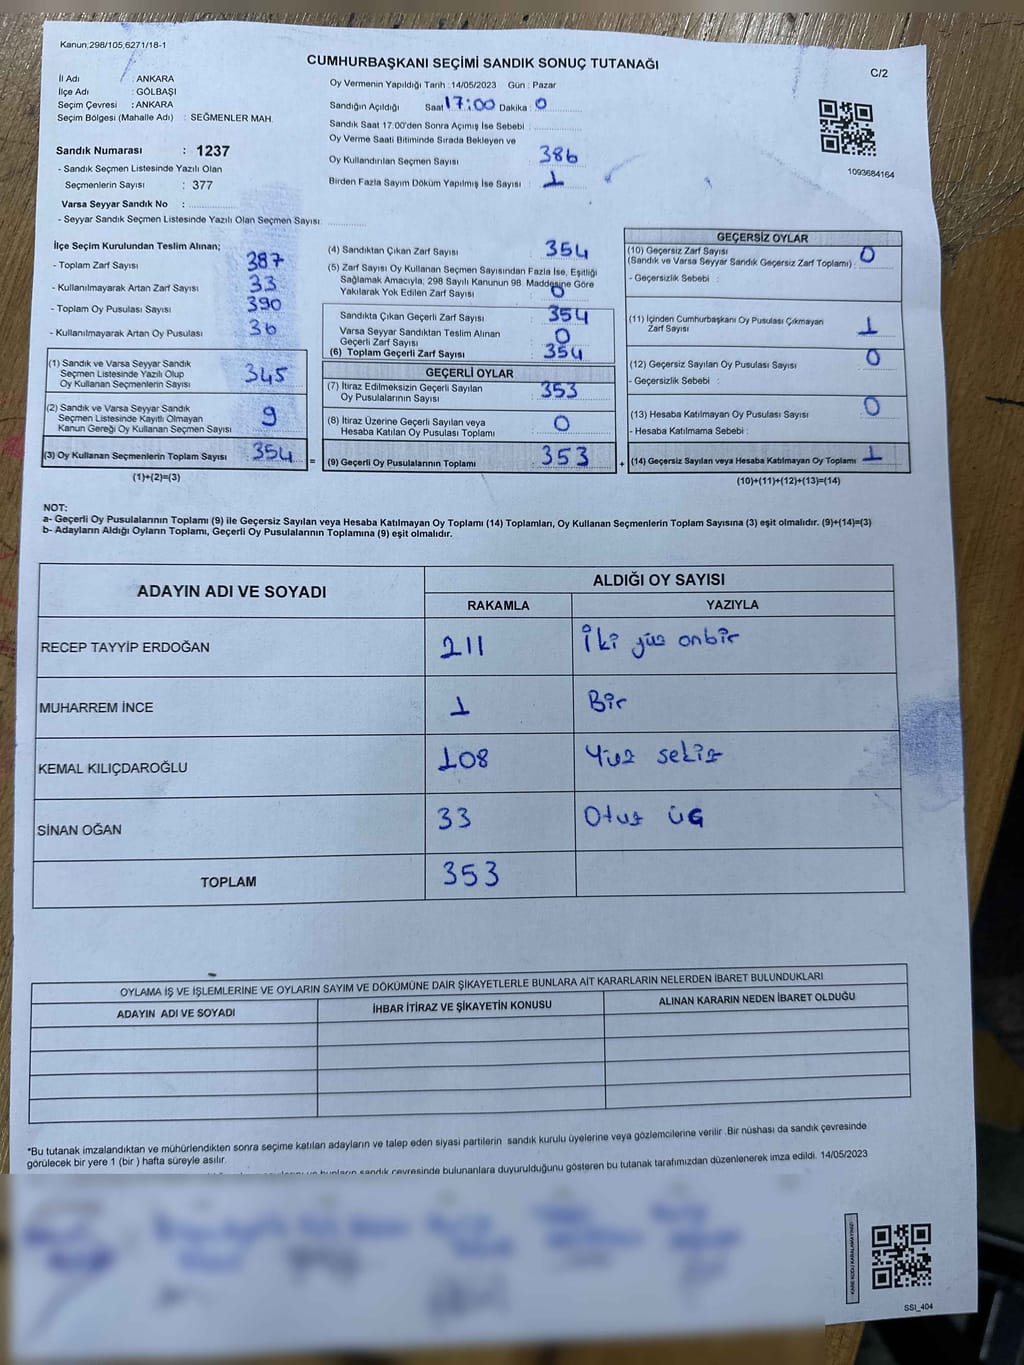 Kanun,298/105,6271/18-1
CUMHURBAŞKANI SEÇİMİ SANDIK SONUÇ TUTANAĞI
C/2
İl Adı : ANKARA
İlçe Adı : GÖLBAŞI
Seçim Çevresi : ANKARA
Seçim Bölgesi (Mahalle Adı) : SEĞMENLER MAH.
Sandık Numarası : 1237
- Sandık Seçmen Listesinde Yazılı Olan
Seçmenlerin Sayısı : 377
Varsa Seyyar Sandık No :
- Seyyar Sandık Seçmen Listesinde Yazılı Olan Seçmen Sayısı:
Oy Vermenin Yapıldığı Tarih : 14/05/2023 Gün : Pazar
Sandığın Açıldığı Saat 17:00 Dakika : 0
Sandık Saat 17.00'den Sonra Açımış İse Sebebi :
Oy Verme Saati Bitiminde Sırada Bekleyen ve
Oy Kullandırılan Seçmen Sayısı : 386
Birden Fazla Sayım Döküm Yapılmış İse Sayısı : 1
1093684164
İlçe Seçim Kurulundan Teslim Alınan;
- Toplam Zarf Sayısı 387
- Kullanılmayarak Artan Zarf Sayısı 33
- Toplam Oy Pusulası Sayısı 390
- Kullanılmayarak Artan Oy Pusulası 36
(1) Sandık ve Varsa Seyyar Sandık
Seçmen Listesinde Yazılı Olup
Oy Kullanan Seçmenlerin Sayısı 345
(2) Sandık ve Varsa Seyyar Sandık
Seçmen Listesinde Kayıtlı Olmayan
Kanun Gereği Oy Kullanan Seçmen Sayısı 9
(3) Oy Kullanan Seçmenlerin Toplam Sayısı 354 =
(1)+(2)=(3)
(4) Sandıktan Çıkan Zarf Sayısı 354
(5) Zarf Sayısı Oy Kullanan Seçmen Sayısından Fazla İse, Eşitliği
Sağlamak Amacıyla, 298 Sayılı Kanunun 98. Maddesine Göre
Yakılarak Yok Edilen Zarf Sayısı 0
Sandıkta Çıkan Geçerli Zarf Sayısı 354
Varsa Seyyar Sandıktan Teslim Alınan
Geçerli Zarf Sayısı 0
(6) Toplam Geçerli Zarf Sayısı 354
GEÇERLİ OYLAR
(7) İtiraz Edilmeksizin Geçerli Sayılan
Oy Pusulalarının Sayısı 353
(8) İtiraz Üzerine Geçerli Sayılan veya
Hesaba Katılan Oy Pusulası Toplamı 0
(9) Geçerli Oy Pusulalarının Toplamı 353 +
GEÇERSİZ OYLAR
(10) Geçersiz Zarf Sayısı
(Sandık ve Varsa Seyyar Sandık Geçersiz Zarf Toplamı) : 0
- Geçersizlik Sebebi :
(11) İçinden Cumhurbaşkanı Oy Pusulası Çıkmayan
Zarf Sayısı 1
(12) Geçersiz Sayılan Oy Pusulası Sayısı 0
- Geçersizlik Sebebi :
(13) Hesaba Katılmayan Oy Pusulası Sayısı 0
- Hesaba Katılmama Sebebi :
(14) Geçersiz Sayılan veya Hesaba Katılmayan Oy Toplamı 1
(10)+(11)+(12)+(13)=(14)
NOT:
a- Geçerli Oy Pusulalarının Toplamı (9) ile Geçersiz Sayılan veya Hesaba Katılmayan Oy Toplamı (14) Toplamları, Oy Kullanan Seçmenlerin Toplam Sayısına (3) eşit olmalıdır. (9)+(14)=(3)
b- Adayların Aldığı Oyların Toplamı, Geçerli Oy Pusulalarının Toplamına (9) eşit olmalıdır.
ADAYIN ADI VE SOYADI ALDIĞI OY SAYISI
RAKAMLA YAZIYLA
RECEP TAYYİP ERDOĞAN 211 İki yüz onbir
MUHARREM İNCE 1 Bir
KEMAL KILIÇDAROĞLU 108 Yüz sekiz
SİNAN OĞAN 33 Otuz üç
TOPLAM 353
OYLAMA İŞ VE İŞLEMLERİNE VE OYLARIN SAYIM VE DÖKÜMÜNE DAİR ŞİKAYETLERLE BUNLARA AİT KARARLARIN NELERDEN İBARET BULUNDUKLARI
ADAYIN ADI VE SOYADI İHBAR İTİRAZ VE ŞİKAYETİN KONUSU ALINAN KARARIN NEDEN İBARET OLDUĞU
*Bu tutanak imzalandıktan ve mühürlendikten sonra seçime katılan adayların ve talep eden siyasi partilerin sandık kurulu üyelerine veya gözlemcilerine verilir .Bir nüshası da sandık çevresinde
görülecek bir yere 1 (bir ) hafta süreyle asılır.
sandık çevresinde bulunanlara duyurulduğunu gösteren bu tutanak tarafımızdan düzenlenerek imza edildi. 14/05/2023
KARE KODU KARALAMAYINIZ!
SSI_404